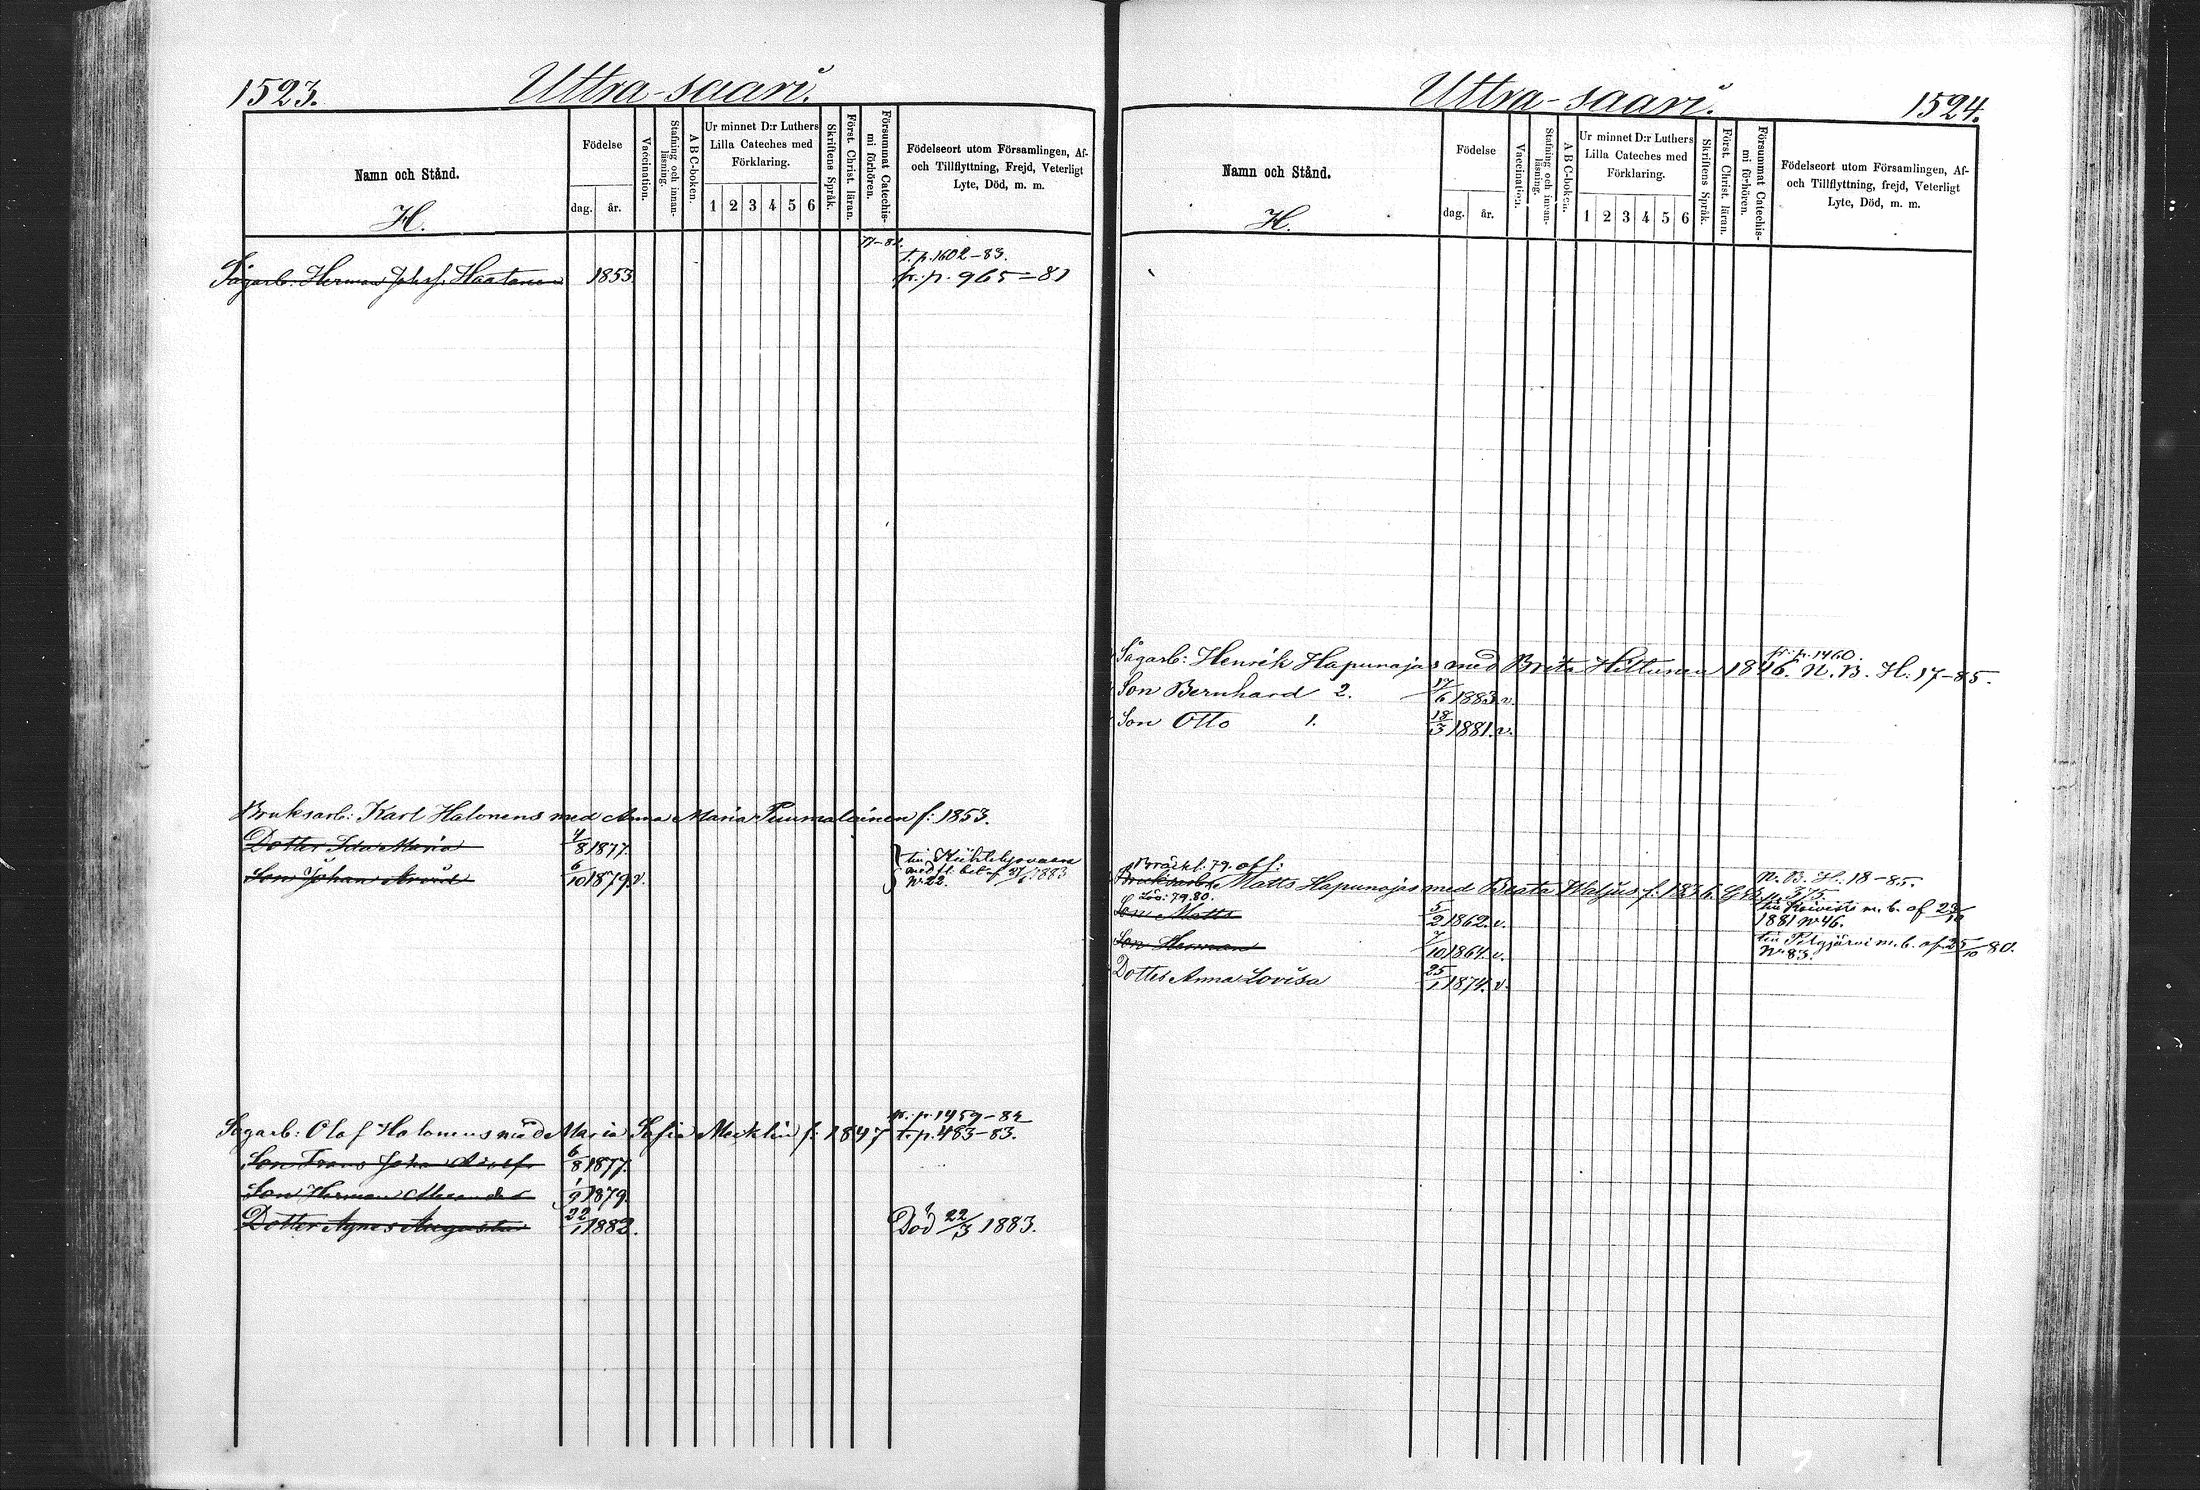 1523.
Uttra-saari.
Namn och Stånd.
H.
Födelse
dag. år.
Vaccination.
Stafning och innan-
läsning.
ABC-boken.
Ur minnet D:r Luthers
Lilla Cateches med
Förklaring.
1 2 3 4 5 6
Skriftens Språk.
Först. Christ. läran.
Försummat Catechis-
mi förhören.
Födelseort utom Församlingen, Af-
och Tillflyttning, Frejd, Veterligt
Lyte, Död, m. m.
t. p. 1602-83.
Sågarb: Herman Johsf. Haatanen 1853. fr. p. 965-81
Bruksarb: Karl Halonens med Anna Maria Puumalainen f: 1853.
Dotter Ida Maria 4/8 1877.
Son Johan Arvid 6/10 1879. v.
med fl. bet. af 31/6 1883
No 22.
fr. p. 1459-82
Sågarb: Olof Halonens med Maria Sofia Mecklin f: 1847 t. p. 483-83.
Son Frans Johan Adolf 6/8 1877.
Son Herman Alexander 1/9 1879.
Dotter Agnes Augusta 22/1 1882. Död 22/3 1883.
Uttra-saari.
1524.
Namn och Stånd.
H.
Födelse
dag. år.
Vaccination.
Stafning och innan-
läsning.
ABC-boken.
Ur minnet D:r Luthers
Lilla Cateches med
Förklaring.
1 2 3 4 5 6
Skriftens Språk.
Först. Christ. läran.
Försummat Catechis-
mi förhören.
Födelseort utom Församlingen, Af-
och Tillflyttning, frejd, Veterligt
Lyte, Död, m. m.
fr. p. 1460.
Sågarb: Henrik Hapunajas med Brita Hiltunen 1846. N. B. H: 17-85.
Son Bernhard 2. 17/6 1883. v.
Son Otto 1. 18/3 1881. v.
N. B. H: 18-85.
Bruksarb: Matts Hapunajas med Beata Waljus f: 1836.
Son Matts 5/2 1862. v. till Koivisto m. b. af
1881 No 46.
Son Herman 7/10 1864. v. till Pelgjärvi m. b. af 25/10 80.
No 83.
Dotter Anna Lovisa 25/1 1874. v.